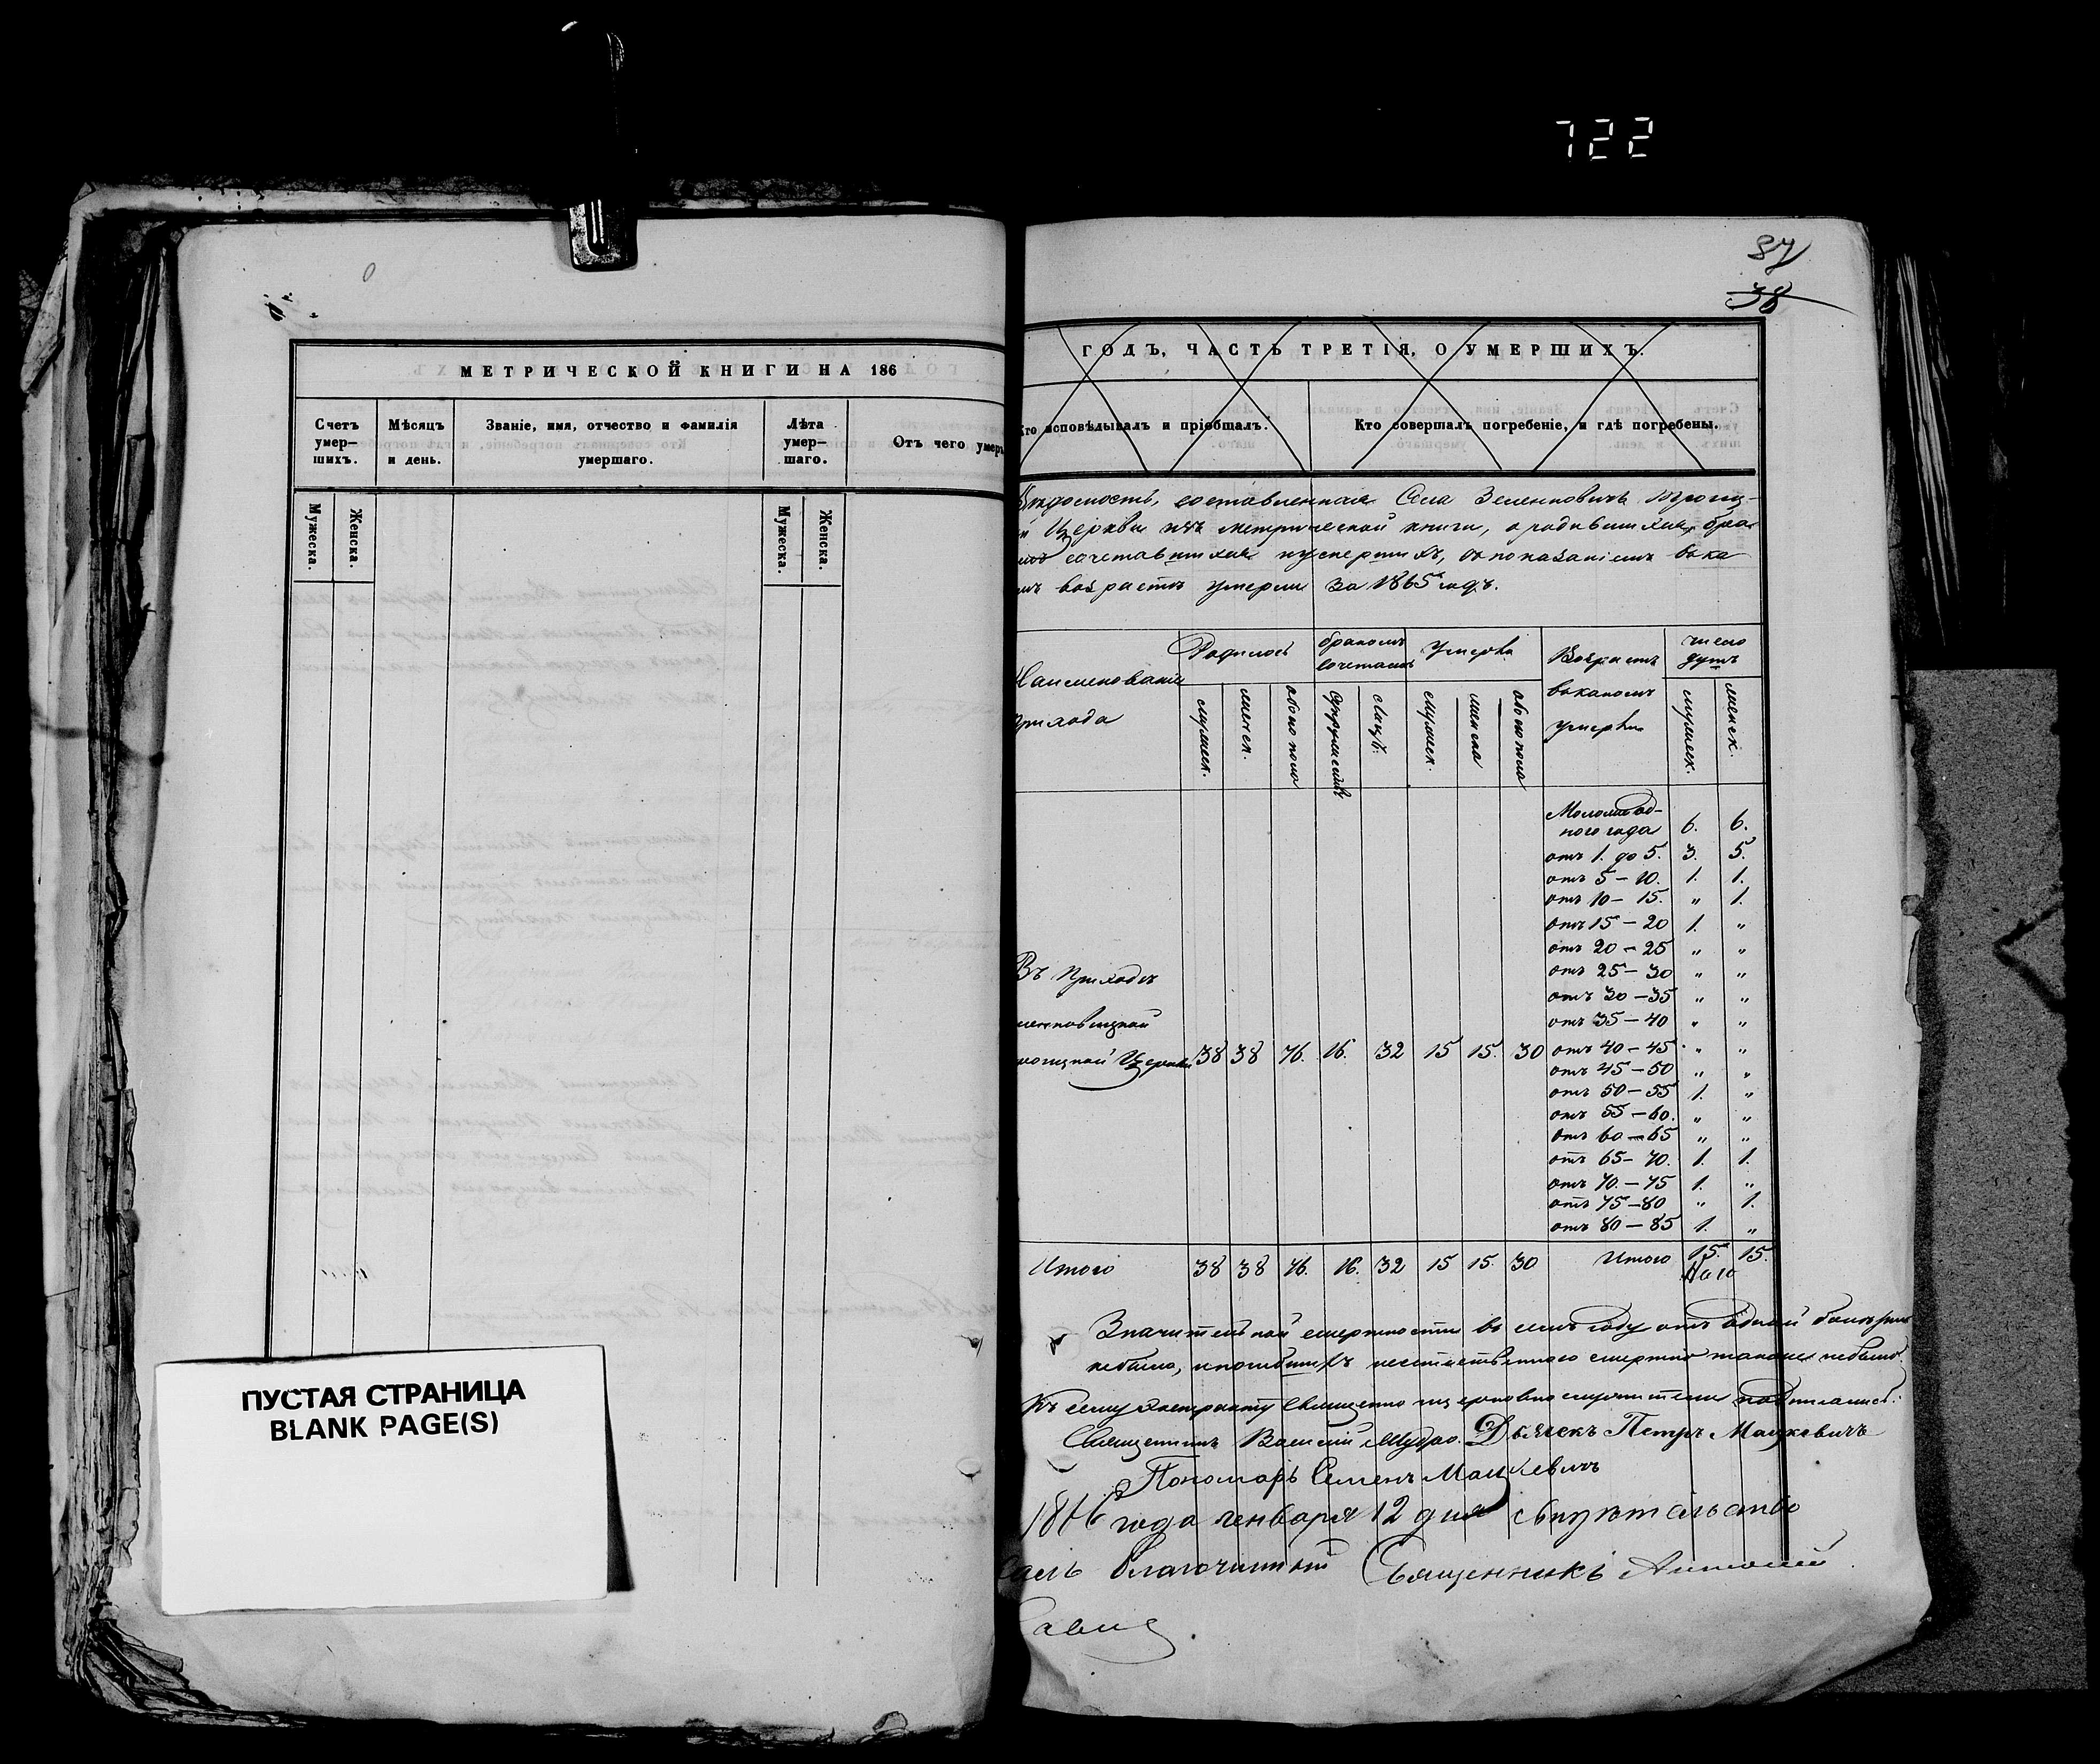 722
87
38
МЕТРИЧЕСКОЙ КНИГИ НА 186
Счетъ умер-шихъ.
Мѣсяцъ и день.
Званіе, имя, отчество и фамилія умершаго.
Лѣта умер-шаго.
Отъ чего умеръ
Мужеска.
Женска.
Мужеска.
Женска.
ПУСТАЯ СТРАНИЦА
BLANK PAGE(S)
ГОДЪ, ЧАСТЬ ТРЕТІЯ, О УМЕРШИХЪ.
Кто исповѣдывалъ и пріобщалъ.
Кто совершалъ погребеніе, и гдѣ погребены.
Вѣдомость, составленная Села Зеленковичъ Троиц-
й Церкви изъ метрической книги, о родившихся, бра
сочетавшихся и умершихъ, съ показаніемъ въ ка
мъ возрастѣ умерли за 1865 годъ.
Наименованіе
прихода
Родилось
бракомъ сочетались
Умерло
Возрастъ
въ какомъ
умерли
число душъ
мужеск.
женск.
обоего пола
супружествъ
лицъ.
мужеск.
женска
обоего пола
мужеск.
женск.
Моложе од-
ного года 6. 6.
отъ 1. до 5. 3. 5.
отъ 5 – 10. 1. 1.
отъ 10 – 15. " 1.
отъ 15 – 20 1. "
отъ 20 – 25 " "
отъ 25 – 30 " "
отъ 30 – 35 " "
отъ 35 – 40 " "
отъ 40 – 45 " "
отъ 45 – 50 " "
отъ 50 – 55 1. "
отъ 55 – 60. " "
отъ 60 – 65 " "
отъ 65 – 70. 1. 1.
отъ 70. – 75 1. "
отъ 75 – 80 " 1.
отъ 80 – 85 1. "
Въ Приходѣ
ленковицкой
роицкой Церкви 38 38 76. 16. 32 15 15. 30
Итого 38 38 76. 16. 32 15 15. 30 Итого 15. 15.
Значительной смертности въ семъ году отъ одной болѣзни
небыло, и погибшихъ неестественною смертію также небыло.
Къ сему экстракту священно церковнослужители подписались:
Священникъ Василій Мудро. Дьячекъ Петръ Мацкевичъ
Пономарь Семенъ Мацкевичъ
1866 года генваря 12 дня свидѣтельство
валъ Благочинный Священникъ Антоній
Савич